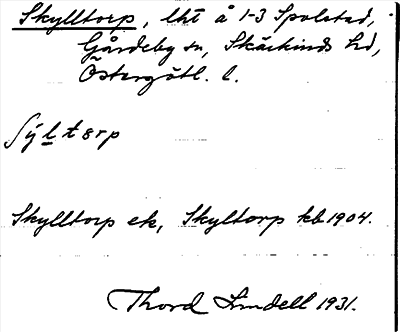 Skylltorp, lht å 1-3 Spolstad,
Gårdeby sn, Skärkinds hd,
Östergötl. l.
ʃy̆l̲tɵrp
Skylltorp ek, Skyltorp kb 1904.
Thord Lindell 1931.